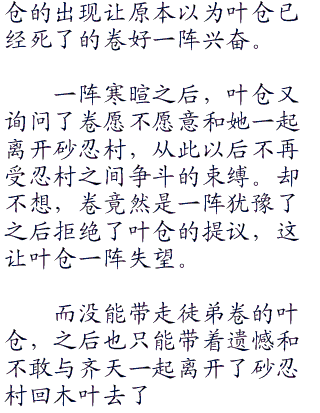 仓的出现让原本以为叶仓已
经死了的卷好一阵兴奋。
一阵寒暄之后，叶仓又
询问了卷愿不愿意和她一起
离开砂忍村，从此以后不再
受忍村之间争斗的束缚。却
不想，卷竟然是一阵犹豫了
之后拒绝了叶仓的提议，这
让叶仓一阵失望。
而没能带走徒弟卷的叶
仓，之后也只能带着遗憾和
不敢与齐天一起离开了砂忍
村回木叶去了